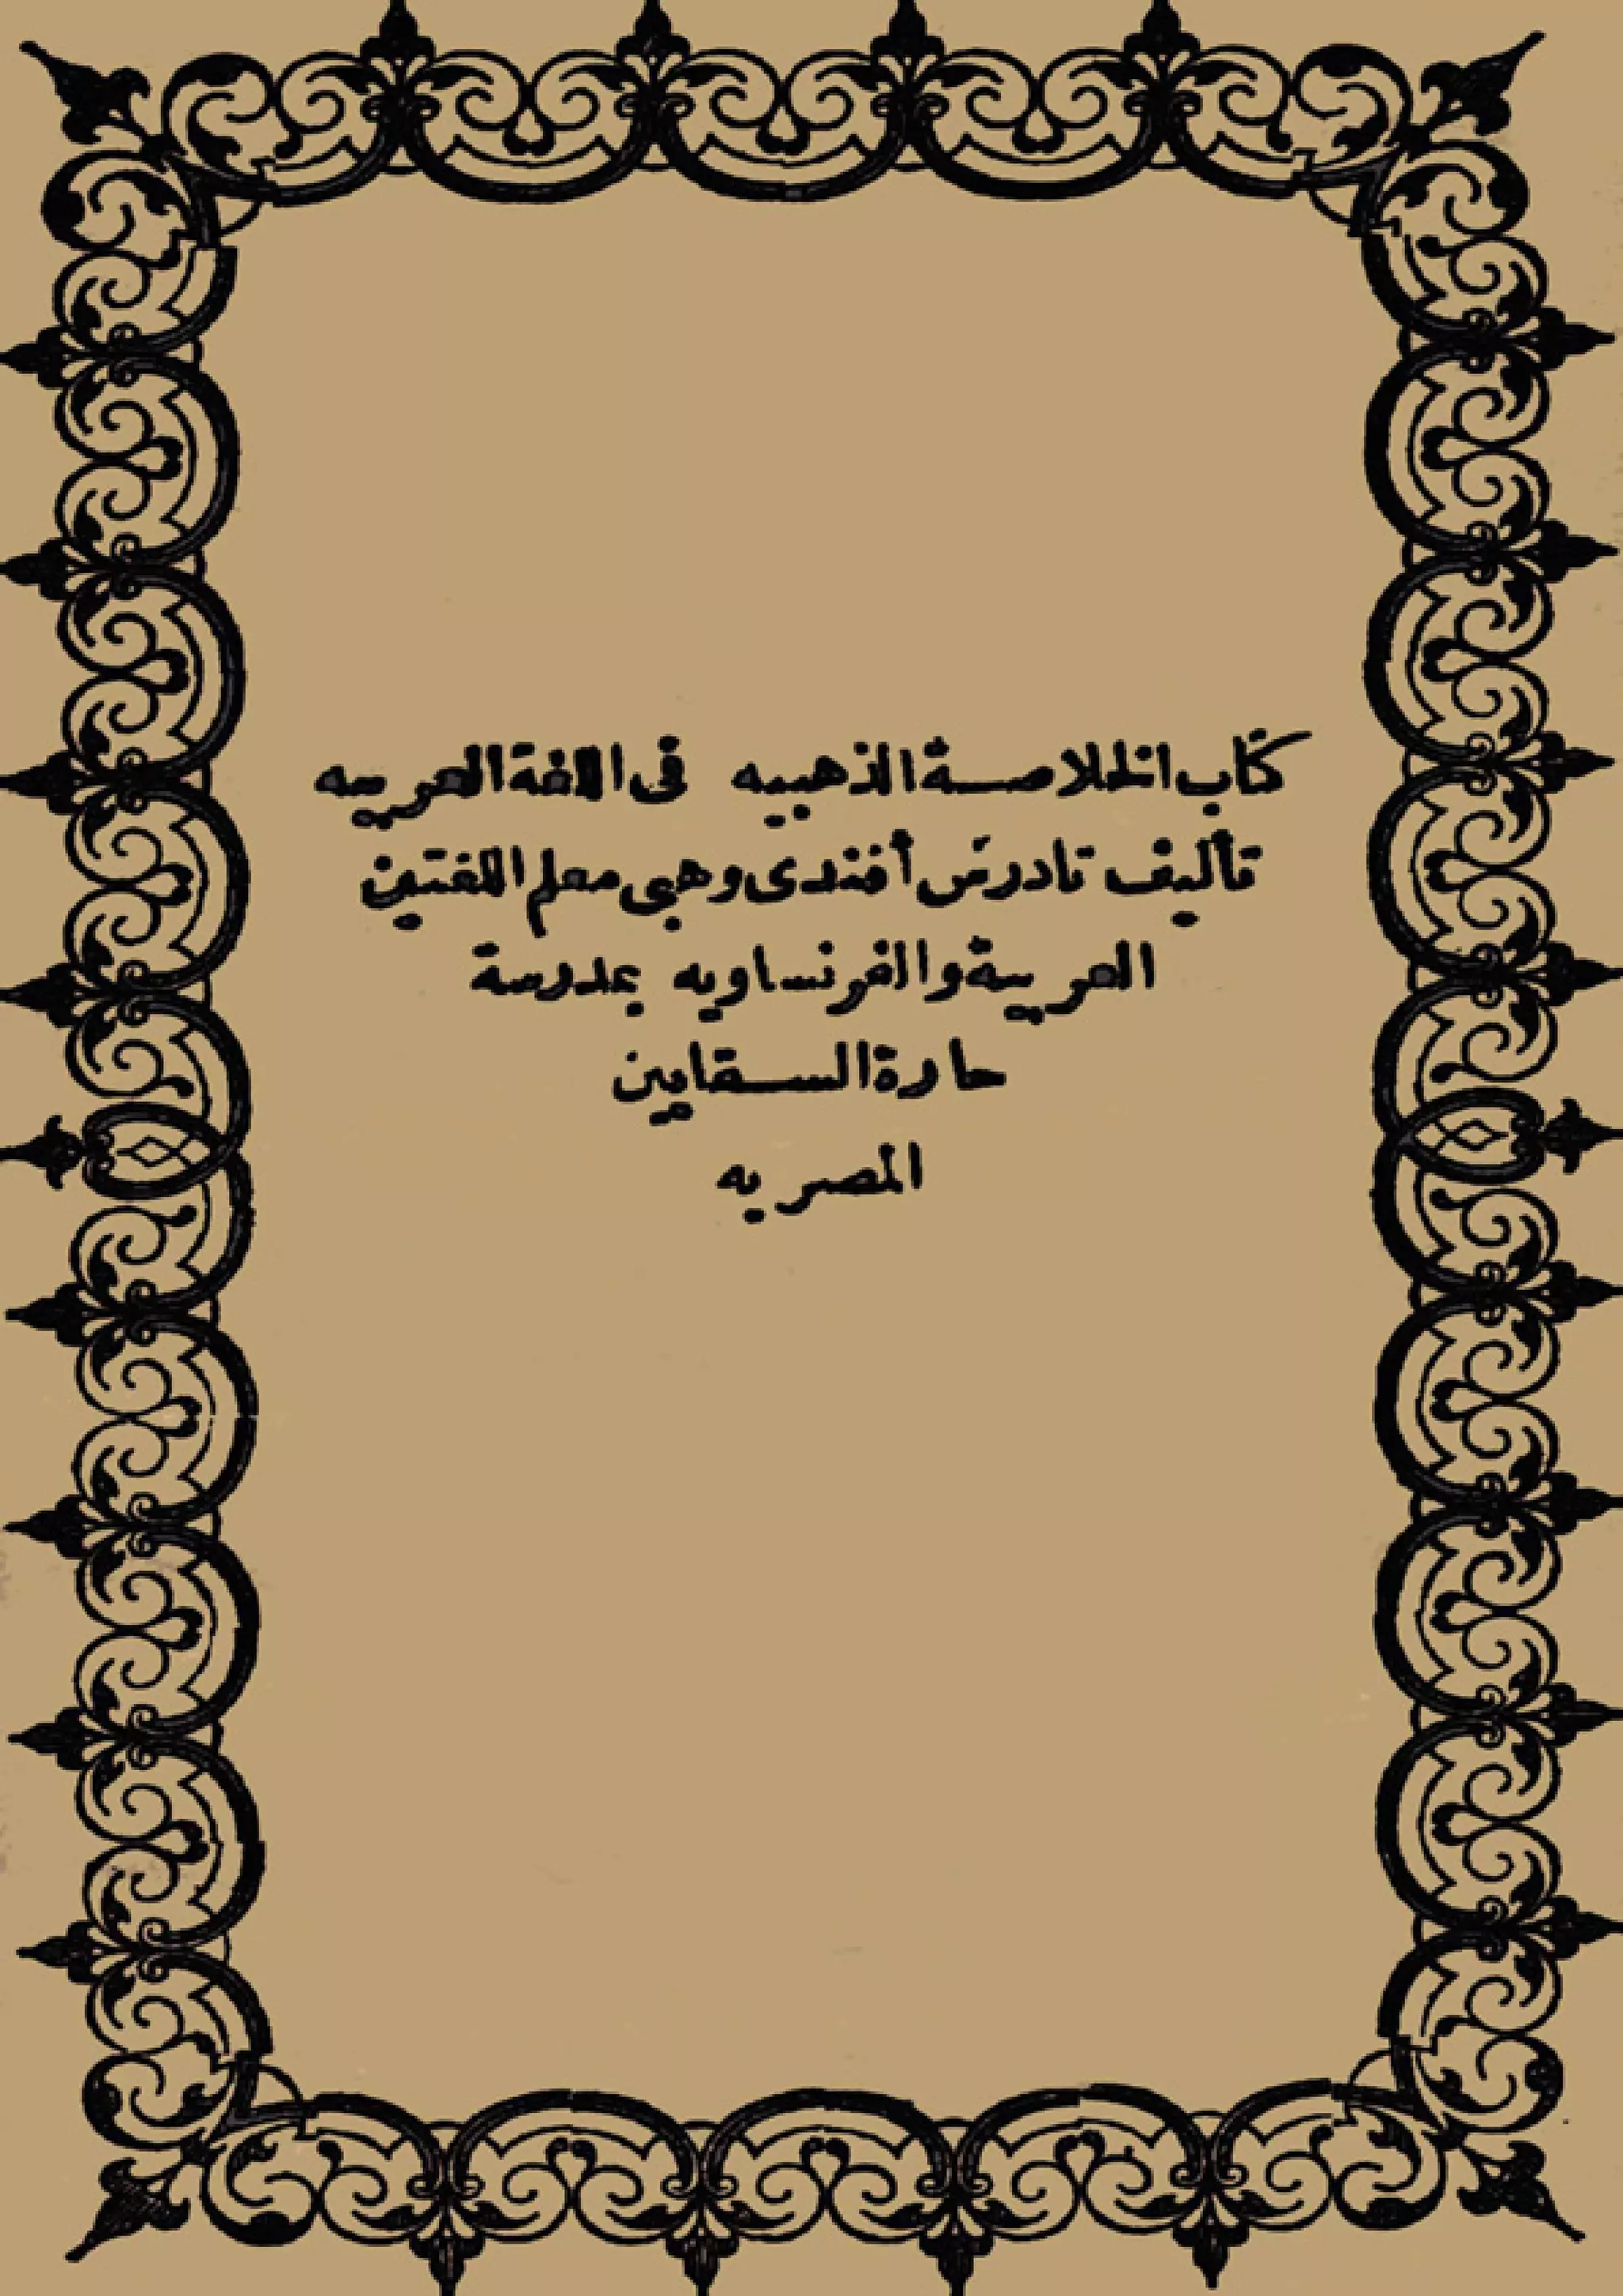 كتاب الخلاصة الذهبيه فى اللغة العربيه
تأليف تادرس أفندى وهبى معلم اللغتين
العربية والفرنساويه بمدرسة
حارة السقايين
المصريه